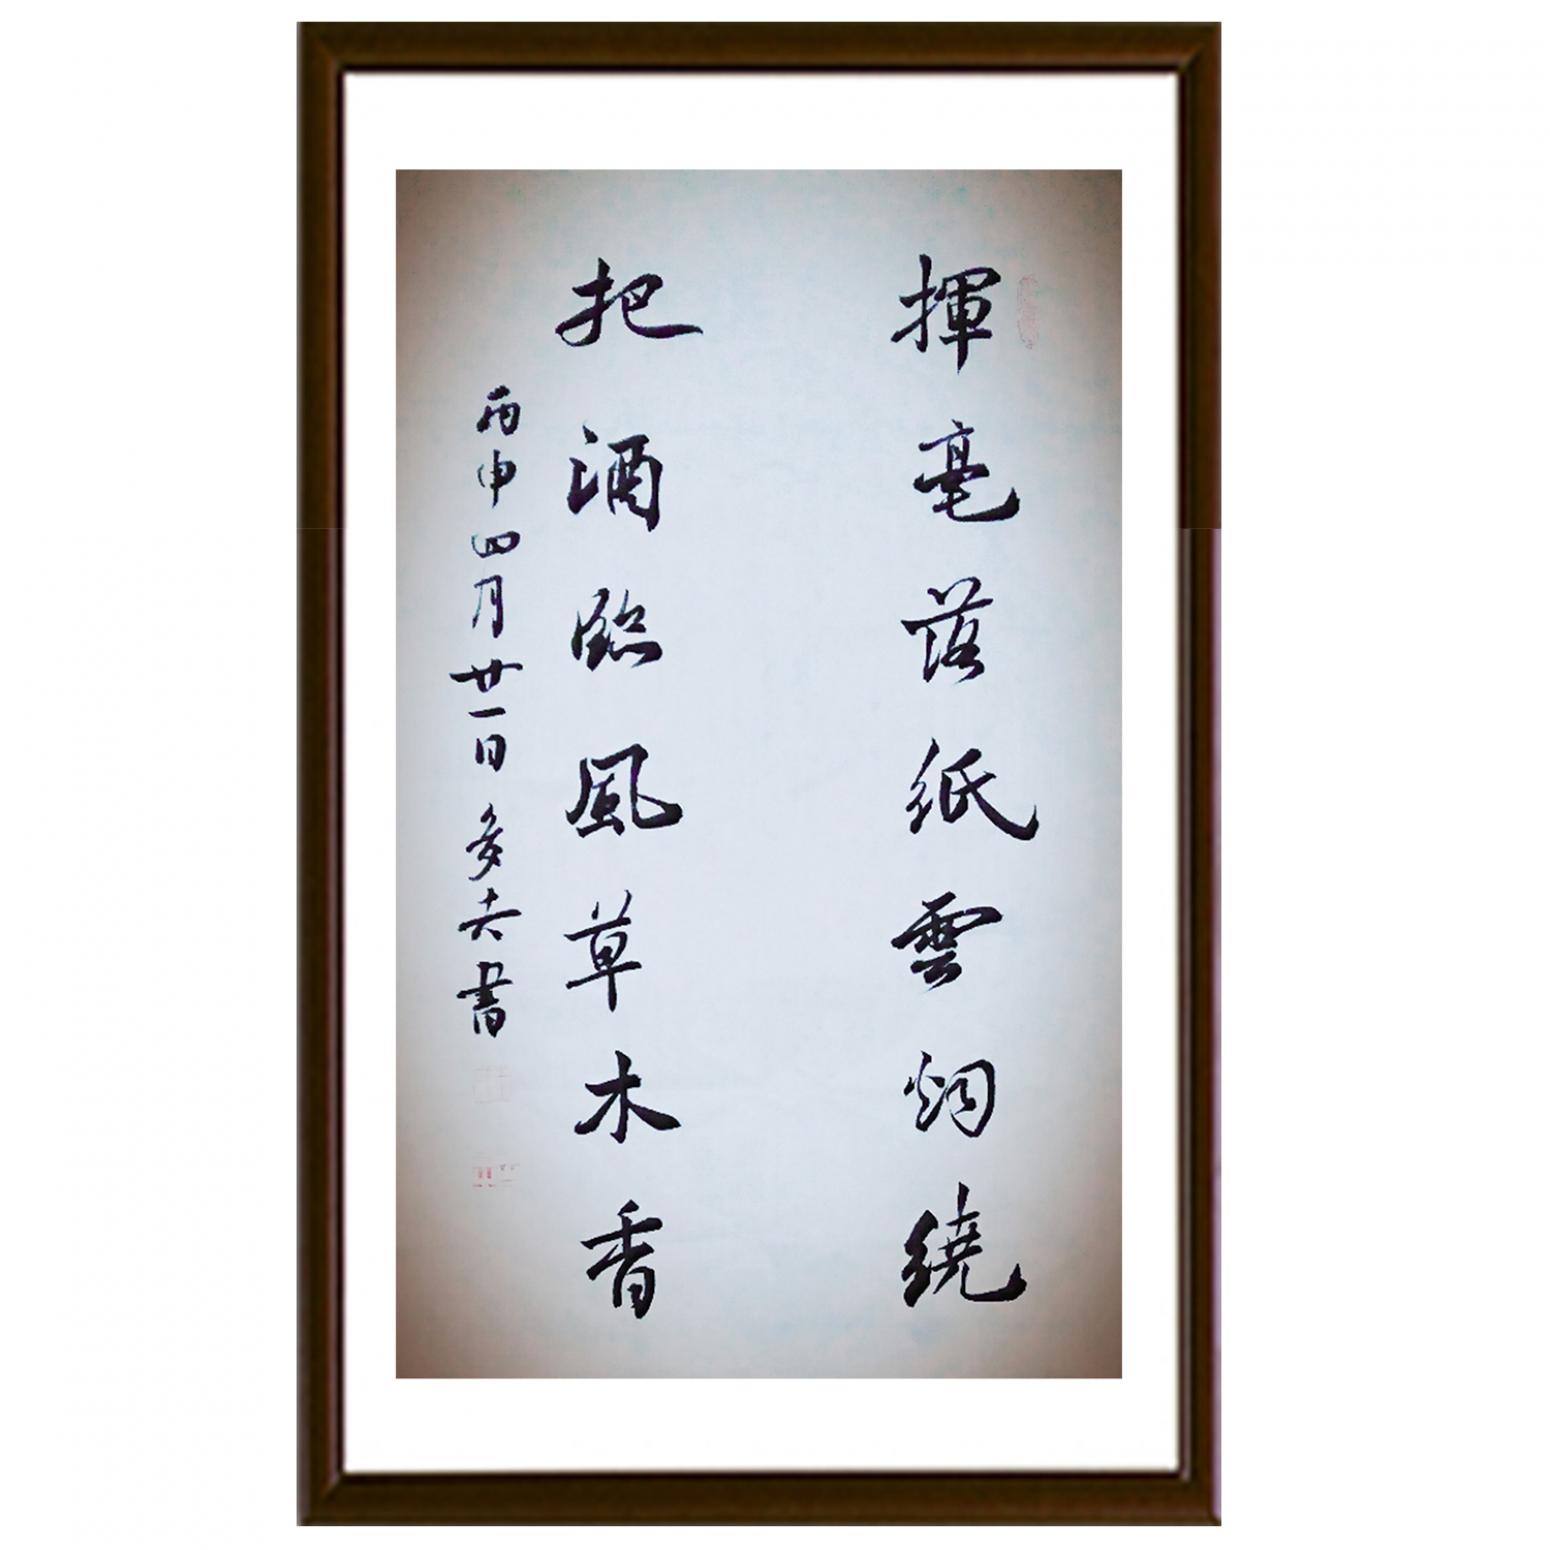 揮毫落紙雲烟繞
把酒臨風草木香
丙申四月廿一日多夫書